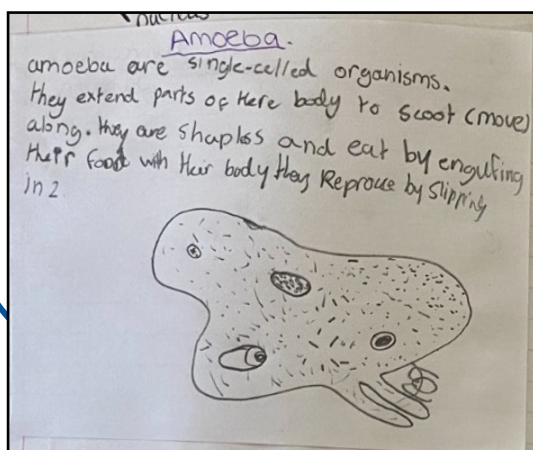 nucleus
Amoeba.
amoeba are single-celled organisms.
they extend parts of there body to scoot (move)
along. they are shapless and eat by engulfing
their food with their body they Reprouce by slipping
in 2